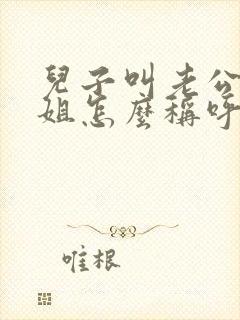 兒子叫老公
姐怎麼稱呼
唯根